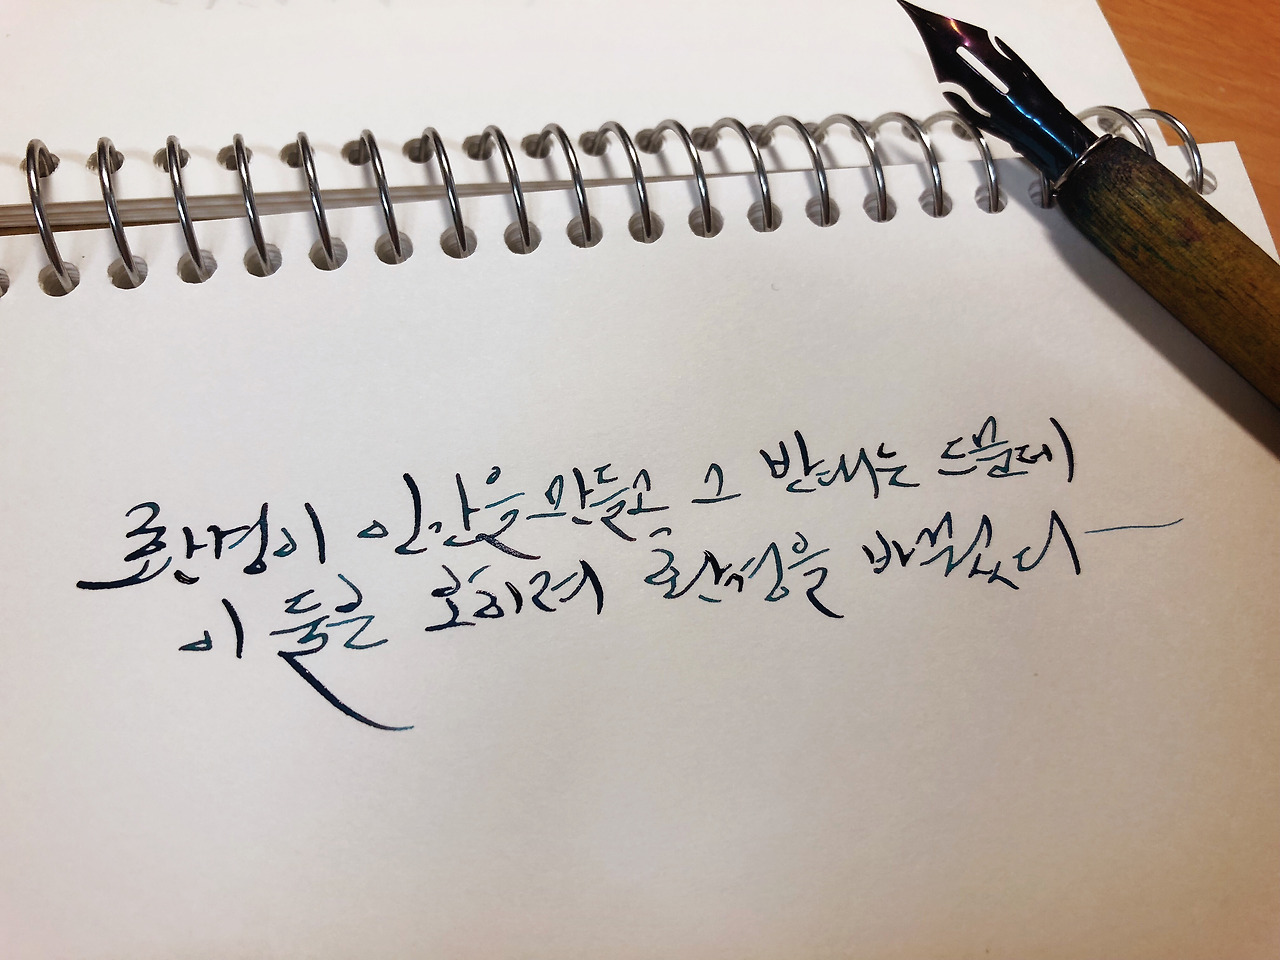 환경이 인간을 만들고 그 반대는 드문데
이 둘은 오히려 환경을 바꿨다